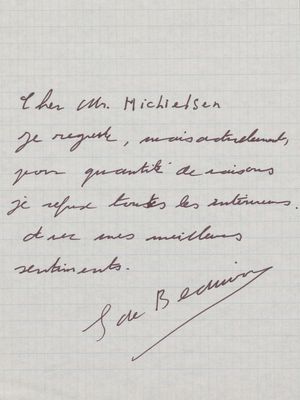 Cher Mr. Michielsen
je regrette, mais actuellement,
pour quantité de raisons
je refuse toutes les interviews.
mes meilleurs
sentiments.
S de Beauvoir